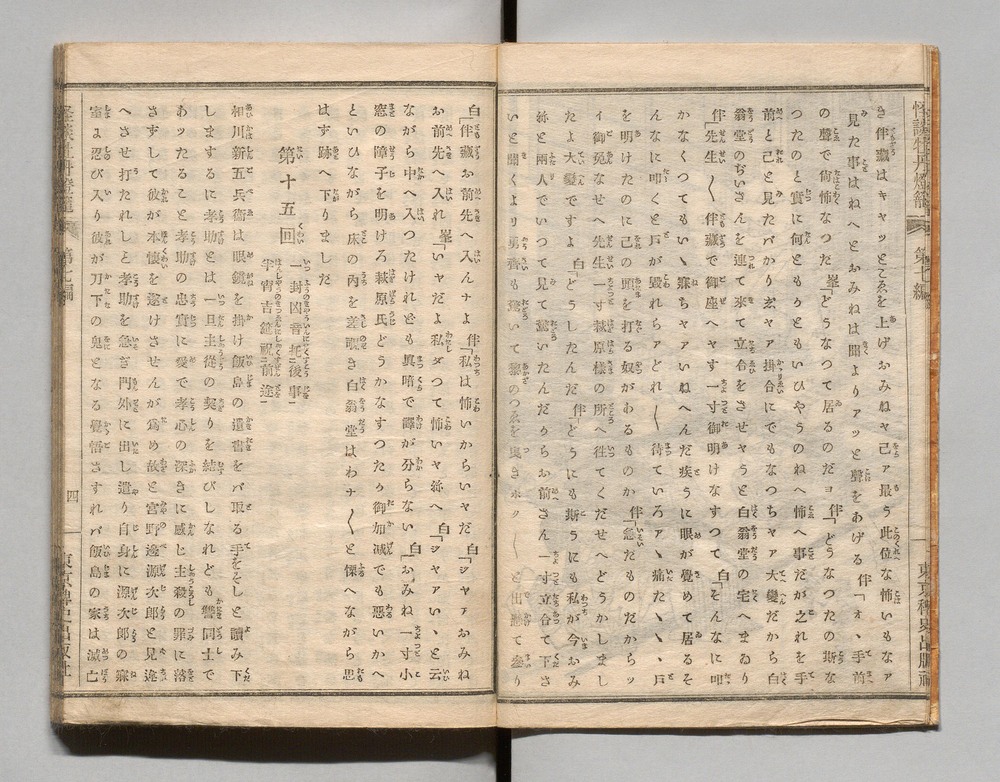 怪談牡丹燈籠 第七編 東京稗史出版社
き伴藏はキャッとこゑを上げおみねヤ己ァ最う此位な怖いもなァ
見た事はねへとおみねは聞よりアッと聲をあげる伴「オヽ手前
の聲で尚怖なつた峯「どうなつて居るのだヨ伴「どうなつたの斯な
つたのと實に何ともうともいひやうのねへ怖へ事だが之れを手
前と己と見たバかり玄ャァ掛合にでもなつちやァ大變だから白
翁堂のぢいさんを連て來て立合をさせやうと白翁堂の宅へまゐり
伴「先生〳〵伴藏で御座へヤす一寸御明けなすつて白「そんなに叩
かなくつてもいゝ寐ちやァいねへんだ疾うに眼が覺めて居るそ
んなに叩くと戸が毀れらァどれ〳〵待ていろァヽ痛たヽヽ戸
を明けたのに己の頭を打る奴があるものか伴「急だものだからッ
イ御免なせへ先生一寸萩原樣の所へ往てくだせへどうかしまし
たよ大變ですよ白「どうしたんだ伴「どうにも斯うにも私が今おみ
ねと兩人でいつて見て驚いたんだからお前さん一寸立合て下さ
いと聞くより勇齋も驚いて藜のつゑを曳きポク〳〵と出掛て參り
白「伴藏お前先へ入んナよ伴「私は怖いからいやだ白「ジャァおみね
お前先へ入れ峯「いやだよ私ダつて怖いヤねへ白「ジャァいゝと云
ながら中へ入つたけれども眞暗で譯が分らない白「おみね一寸小
窓の障子を明けろ萩原氏どうかなすつたか御加减でも惡いかへ
といひながら床の內を差覗き白翁堂はわナ〳〵と慄へながら思
はず跡へ下りました
第十五回
相川新五兵衞は眼鏡を掛け飯島の遺書をバ取る手をそしと讀み下
しまするに孝助とは一旦主從の契りを結びしなれども讐同士で
あッたること孝助の忠實に愛で孝心の深きに感じ主殺の罪に落
さずして彼が本懷を遂げさせんが爲め故と宮野邊源次郎と見違
へさせ打たれしと孝助を急ぎ門外に出し遣り自身に源次郎の寐
室ェ忍び入り彼が刀下の鬼となる覺悟さすれバ飯島の家は滅亡
怪談牡丹燈籠 第七編 四 東京稗史出版社